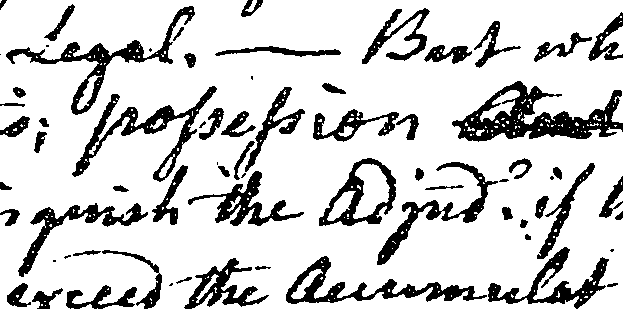 Legal. — But wh
is; possession
inguish the Adjudn. if
exceed the Accumulat